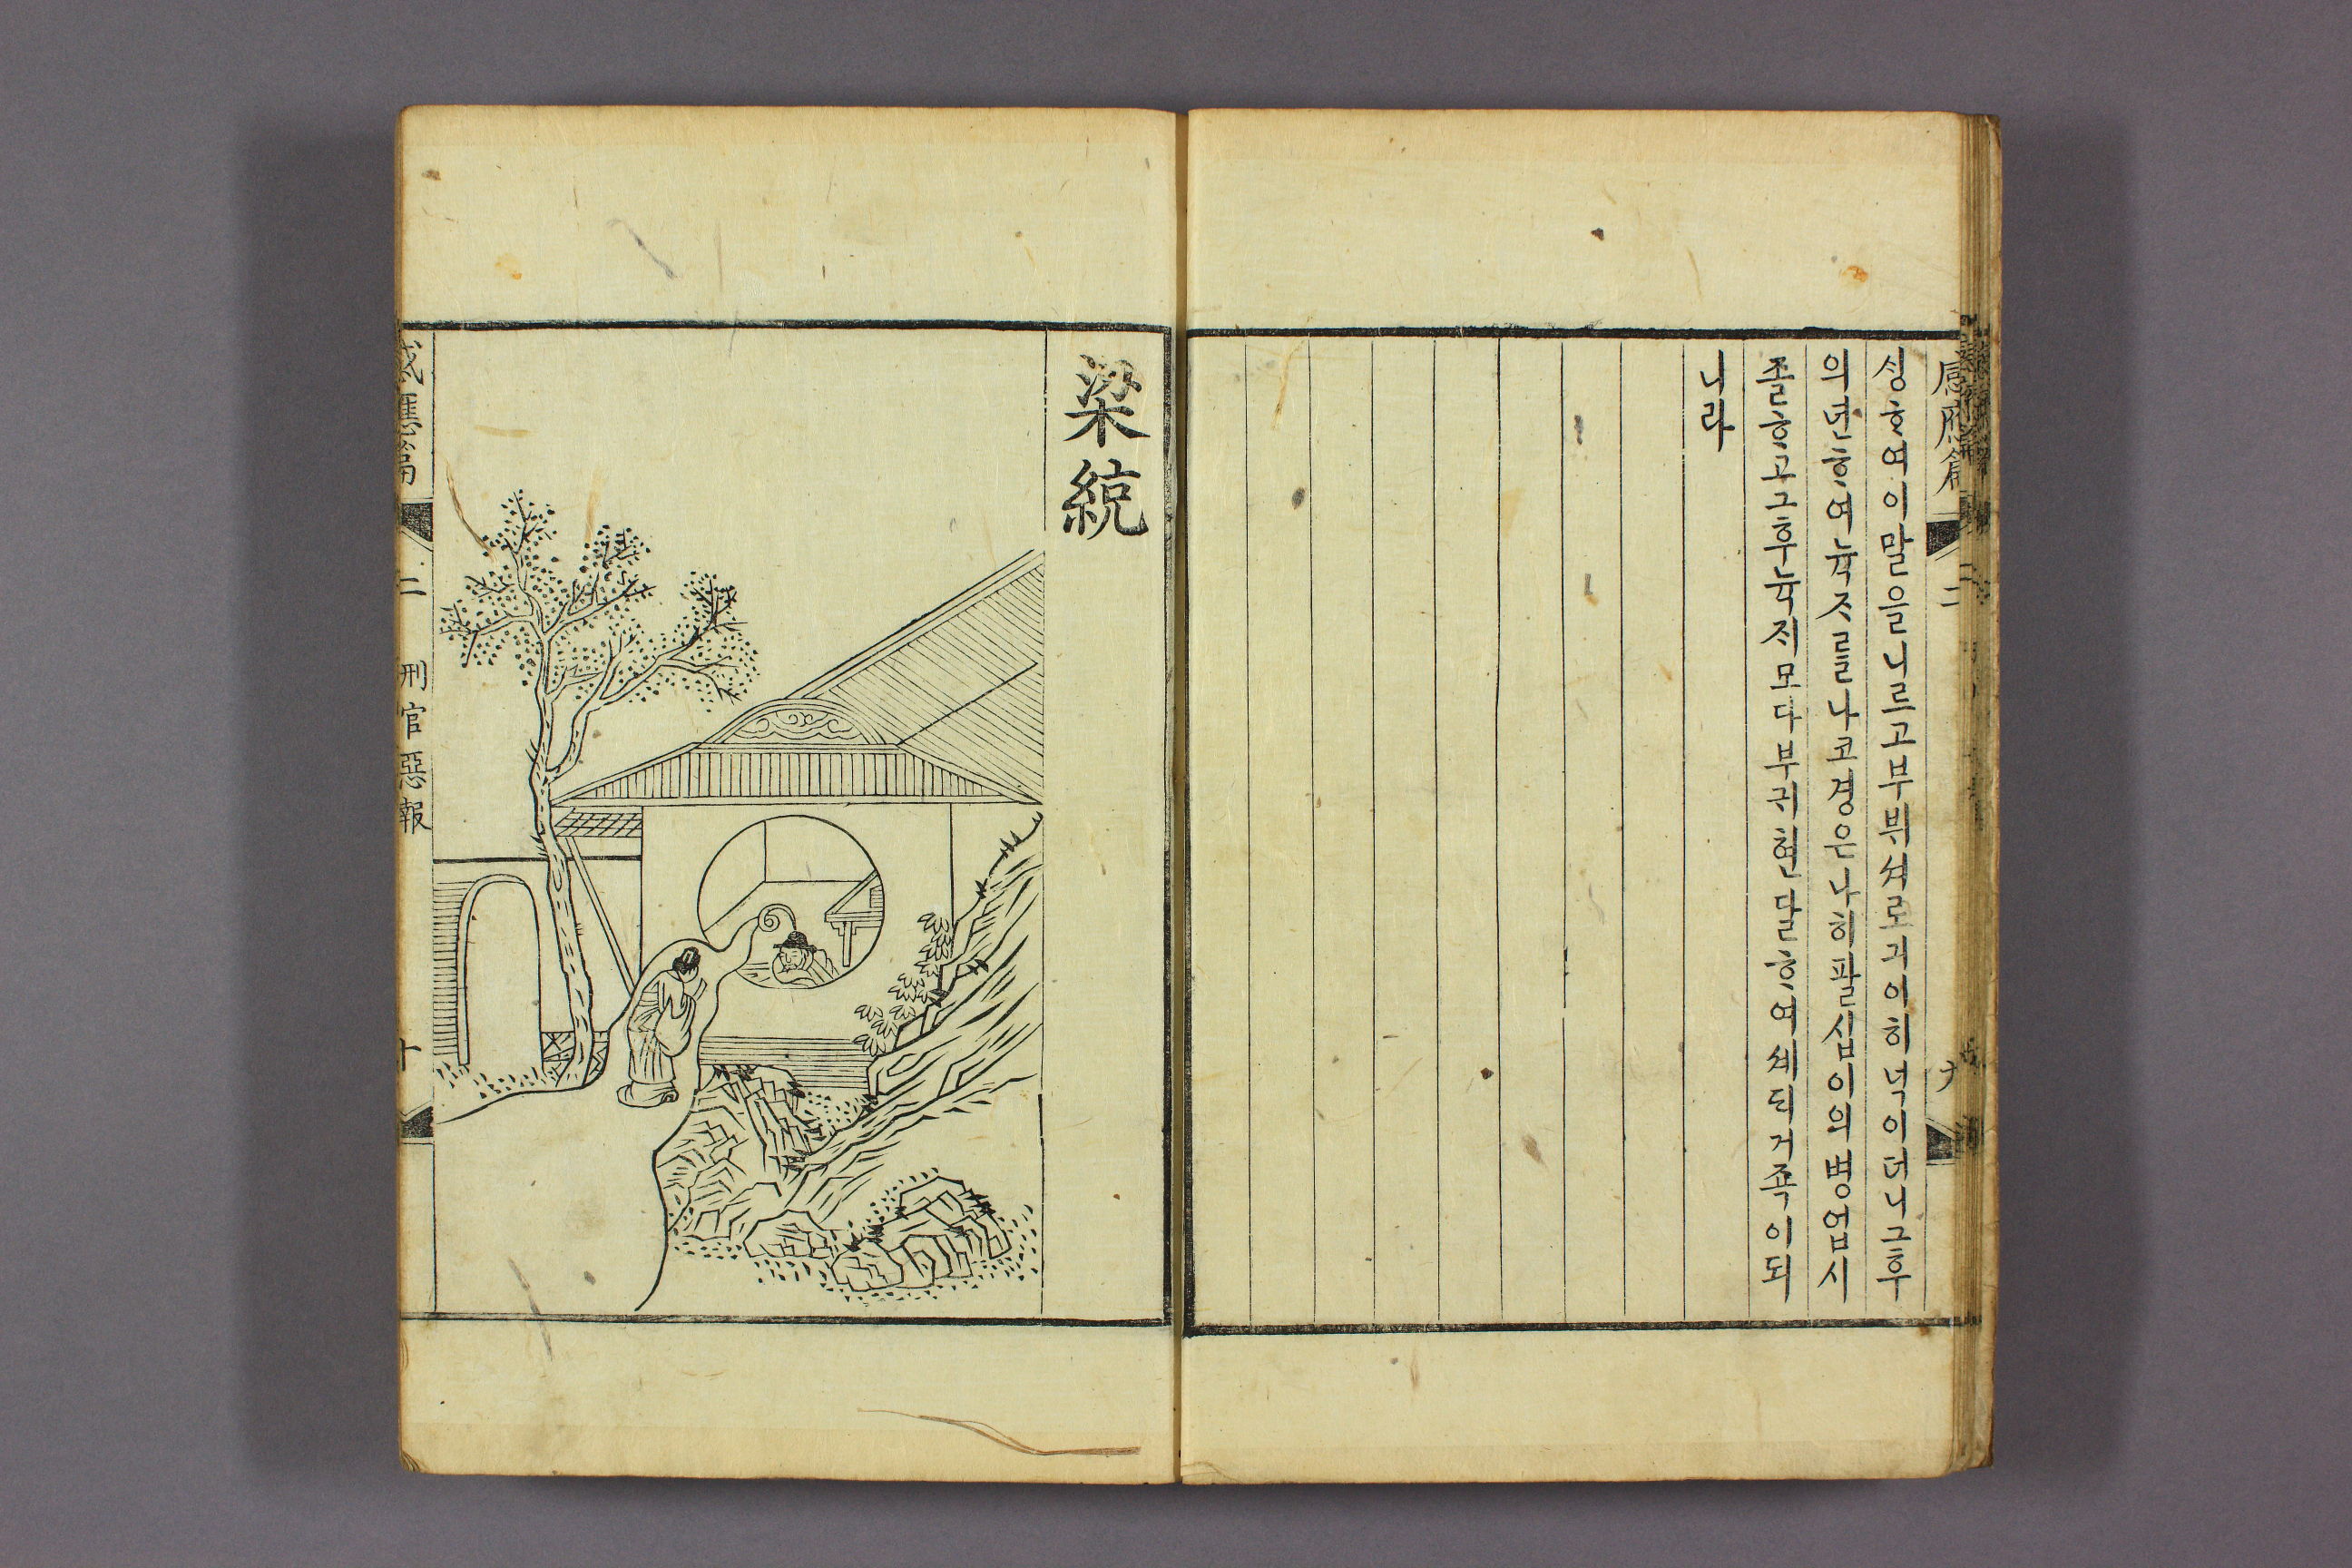 感應篇 二 九
싱ᄒᆞ여이말을니르고부뷔셔로긔이히넉이더니그후
의년ᄒᆞ여뉵ᄌᆞ를나코경은나히팔십이의병업시
졸ᄒᆞ고그후뉵ᄌᆡ모다부귀현달ᄒᆞ여셰ᄃᆡ거죡이되
니라
梁統
感應篇 二 刑官惡報 十